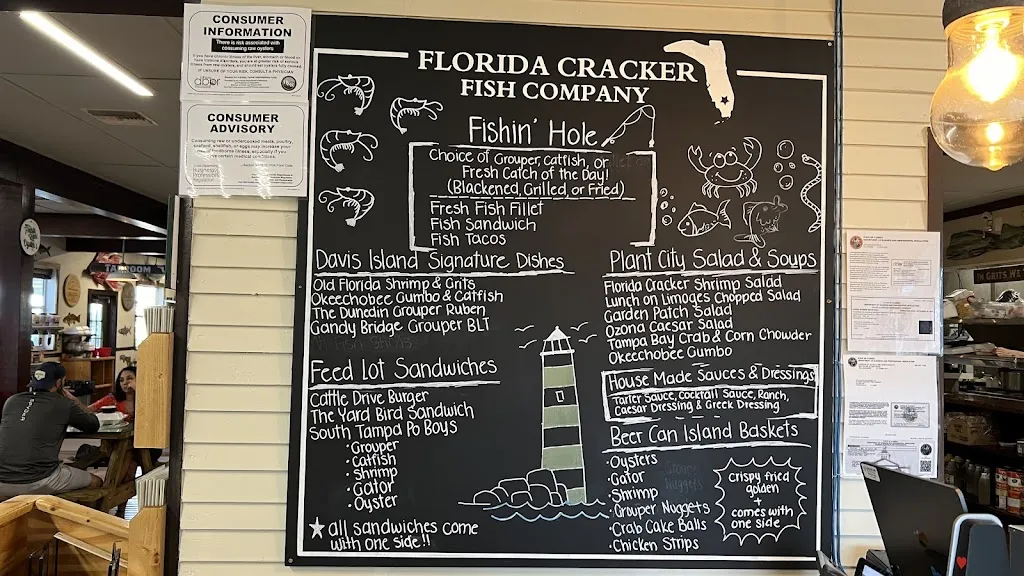 CONSUMER
INFORMATION
There is risk associated with
consuming raw oysters
IF UNSURE OF YOUR RISK, CONSULT A PHYSICIAN
dbpr
CONSUMER
ADVISORY
Consuming raw or undercooked meats, poultry,
seafood, shellfish, or eggs may increase your
FLORIDA CRACKER
FISH COMPANY
Fishin' Hole
Choice of Grouper, catfish, or
Fresh Catch of the Day!
(Blackened, Grilled, or Fried)
Fresh Fish Fillet
Fish Sandwich
Fish Tacos
Davis Island Signature Dishes
Old Florida Shrimp & Grits
Okeechobee Gumbo & Catfish
The Dunedin Grouper Ruben
Gandy Bridge Grouper BLT
Feed Lot Sandwiches
Cattle Drive Burger
The Yard Bird Sandwich
South Tampa Po Boys
• Grouper
• Catfish
• Shrimp
• Gator
• Oyster
all sandwiches come
with one side!!
Plant City Salad & Soups
Florida Cracker Shrimp Salad
Lunch on Limoges Chopped Salad
Garden Patch Salad
Ozona Caesar Salad
Tampa Bay Crab & Corn Chowder
Okeechobee Gumbo
House Made Sauces & Dressings
Tarter Sauce, Cocktail Sauce, Ranch,
Caesar Dressing & Greek Dressing
Beer Can Island Baskets
• Oysters
• Gator
• Shrimp
• Grouper Nuggets
• Crab Cake Balls
• Chicken Strips
crispy fried
golden
+
comes with
one side
TAPROOM
GRITS WE